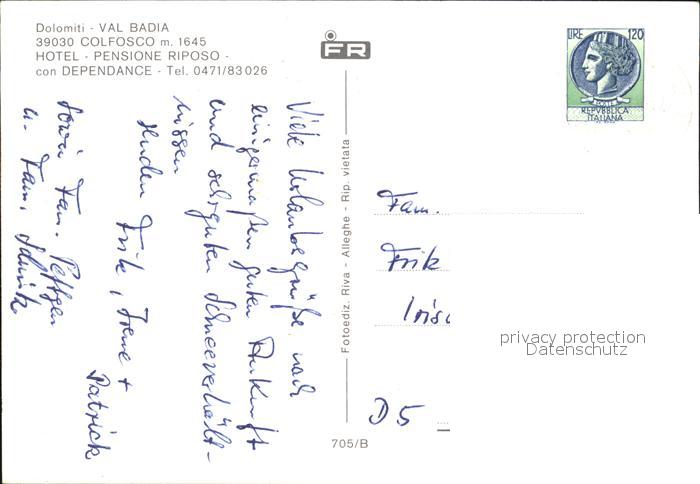 Dolomiti - VAL BADIA
39030 COLFOSCO m. 1645
HOTEL - PENSIONE RIPOSO -
con DEPENDANCE - Tel. 0471/83026
FR
LIRE 120
POSTE
REPVBBLICA
ITALIANA
Viele Urlaubsgrüße nach
einigermaßen guten Ankunft
und sehr guten Schneeverhält-
nissen
senden Fritz, Irene +
Patrick
sowie Fam.
u. Fam.
Fotoediz. Riva - Alleghe - Rip. vietata
705/B
Fam.
D 5
privacy protection
Datenschutz